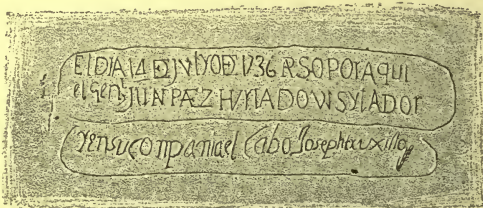 El DIA 14 DE JVlYO DE 1736 PASO POr AquI
el Genl JUN PAEZ HURTADO VISYTADOr
Y en su conpania el Cabo Joseph truxillo